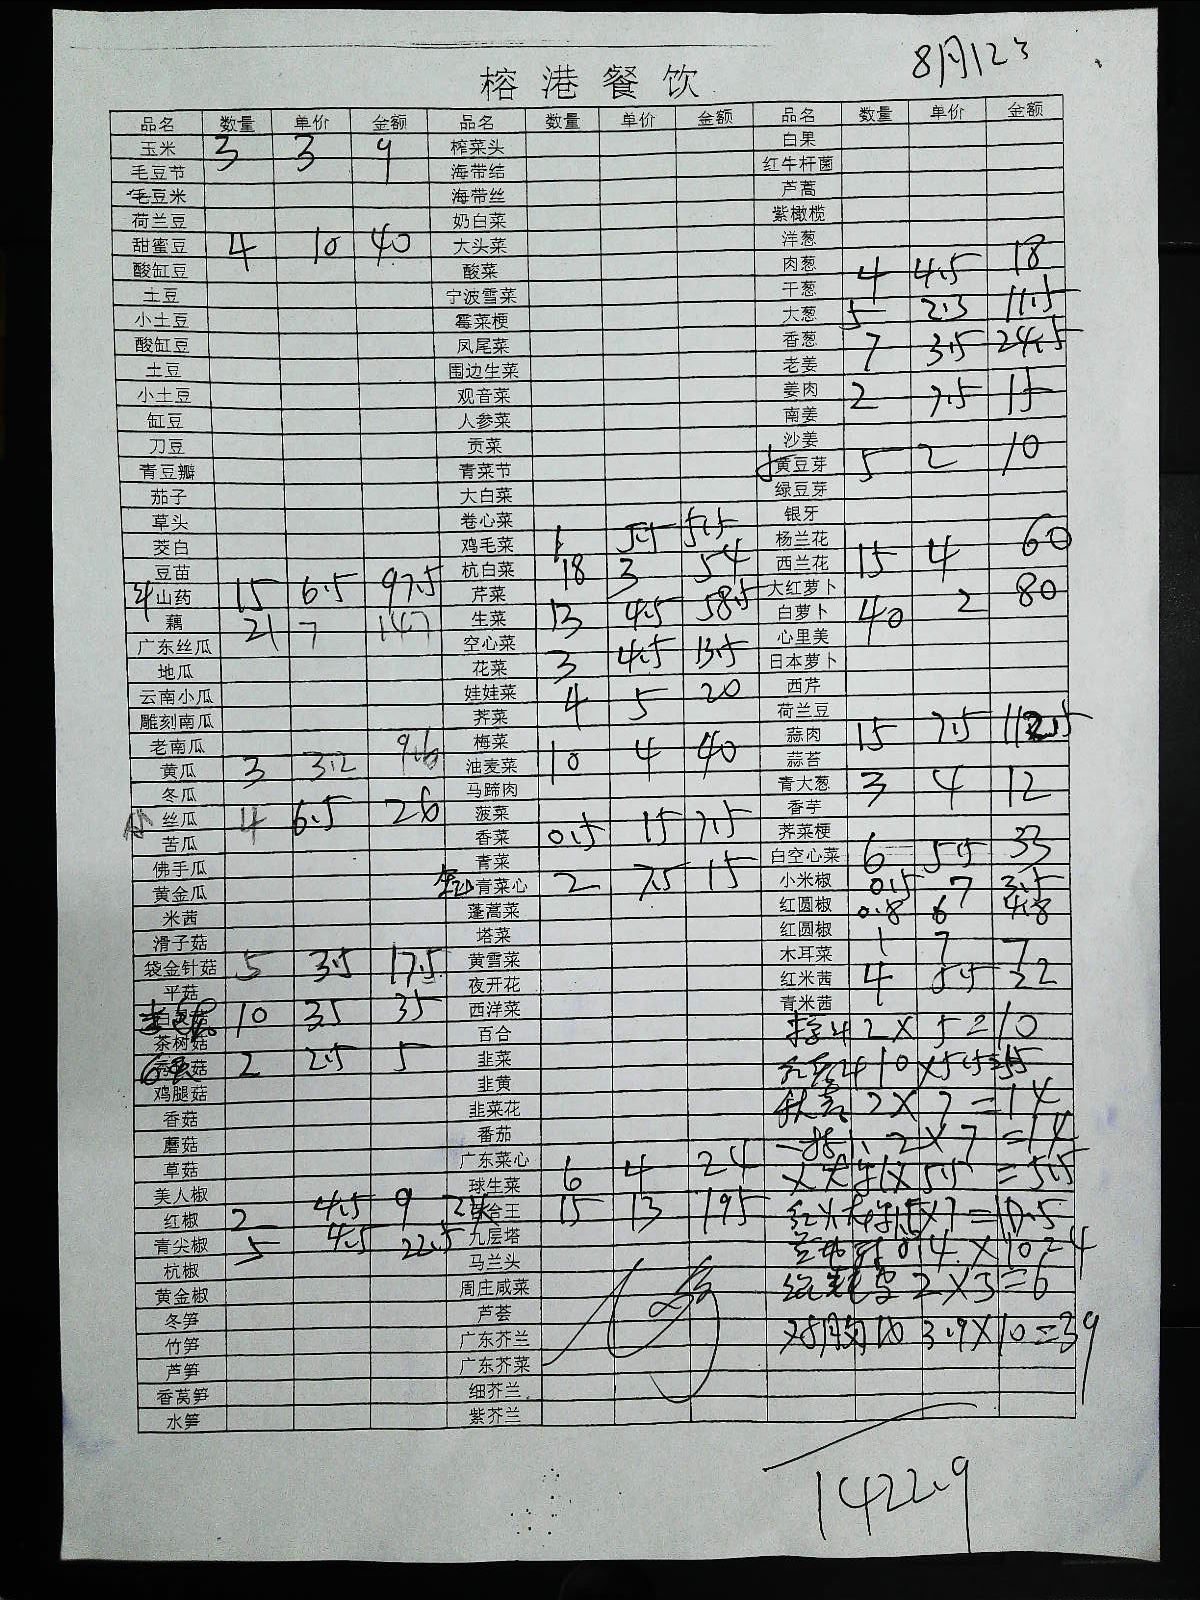 8月12日
榕港餐饮
品名 数量 单价 金额 品名 数量 单价 金额 品名 数量 单价 金额
玉米 3 3 9 榨菜头 白果
毛豆节 海带结 红牛杆菌
毛豆米 海带丝 芦蒿
荷兰豆 奶白菜 紫橄榄
甜蜜豆 4 10 40 大头菜 洋葱
酸缸豆 酸菜 肉葱 4 4.5 18
土豆 宁波雪菜 干葱
小土豆 霉菜梗 大葱 5 2.3 11.5
酸缸豆 凤尾菜 香葱 7 3.5 24.5
土豆 围边生菜 老姜
小土豆 观音菜 姜肉 2 7.5 15
缸豆 人参菜 南姜
刀豆 贡菜 沙姜
青豆瓣 青菜节 黄豆芽 5 2 10
茄子 大白菜 绿豆芽
草头 卷心菜 银牙
茭白 鸡毛菜 1 5.5 5.5 杨兰花
豆苗 杭白菜 18 3 54 西兰花 15 4 60
山药 15 6.5 97.5 芹菜 大红萝卜
藕 21 7 147 生菜 13 4.5 58.5 白萝卜 40 2 80
广东丝瓜 空心菜 心里美
地瓜 花菜 3 4.5 13.5 日本萝卜
云南小瓜 娃娃菜 4 5 20 西芹
雕刻南瓜 荠菜 荷兰豆
老南瓜 梅菜 蒜肉 15 7.5 112.5
黄瓜 3 3.2 9.6 油麦菜 10 4 40 蒜苔
冬瓜 马蹄肉 青大葱 3 4 12
丝瓜 4 6.5 26 菠菜 香芋
苦瓜 香菜 0.5 15 7.5 荠菜梗
佛手瓜 青菜 白空心菜 6 5.5 33
黄金瓜 青菜心 2 7.5 15 小米椒 0.5 7 3.5
米茜 蓬蒿菜 红圆椒 0.8 6 4.8
滑子菇 塔菜 红圆椒
袋金针菇 5 3.5 17.5 黄雪菜 木耳菜 1 7 7
平菇 夜开花 红米茜 4 5.5 22
10 3.5 35 西洋菜 青米茜
茶树菇 百合 2×5=10
2 2.5 5 韭菜 10×5.5=55
鸡腿菇 韭黄
香菇 韭菜花 2×7=14
蘑菇 番茄 2×7=14
草菇 广东菜心 6 4 24 1×5.5=5.5
美人椒 球生菜
红椒 2 4.5 9 百合王 15 13 195 1.5×7=10.5
青尖椒 5 4.5 22.5 九层塔
杭椒 马兰头 0.4×10 4
黄金椒 周庄咸菜 2×3=6
冬笋 芦荟
竹笋 广东芥兰 3.9×10=39
芦笋 广东芥菜
香莴笋 细芥兰
水笋 紫芥兰
1422.9